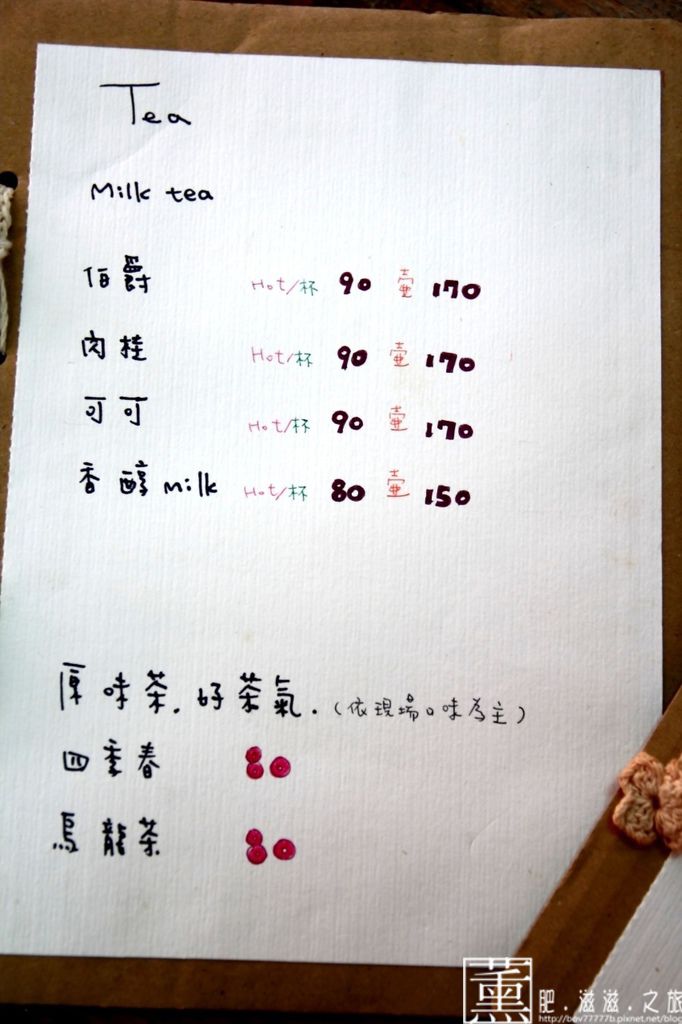 Tea
Milk tea
伯爵 Hot/杯 90 壺 170
肉桂 Hot/杯 90 壺 170
可可 Hot/杯 90 壺 170
香醇 milk Hot/杯 80 壺 150
原味茶.好茶氣.(依現場口味為主)
四季春 80
烏龍茶 80
薰 肥.滋滋.之旅
http://bev77777b.pixnet.net/bloc